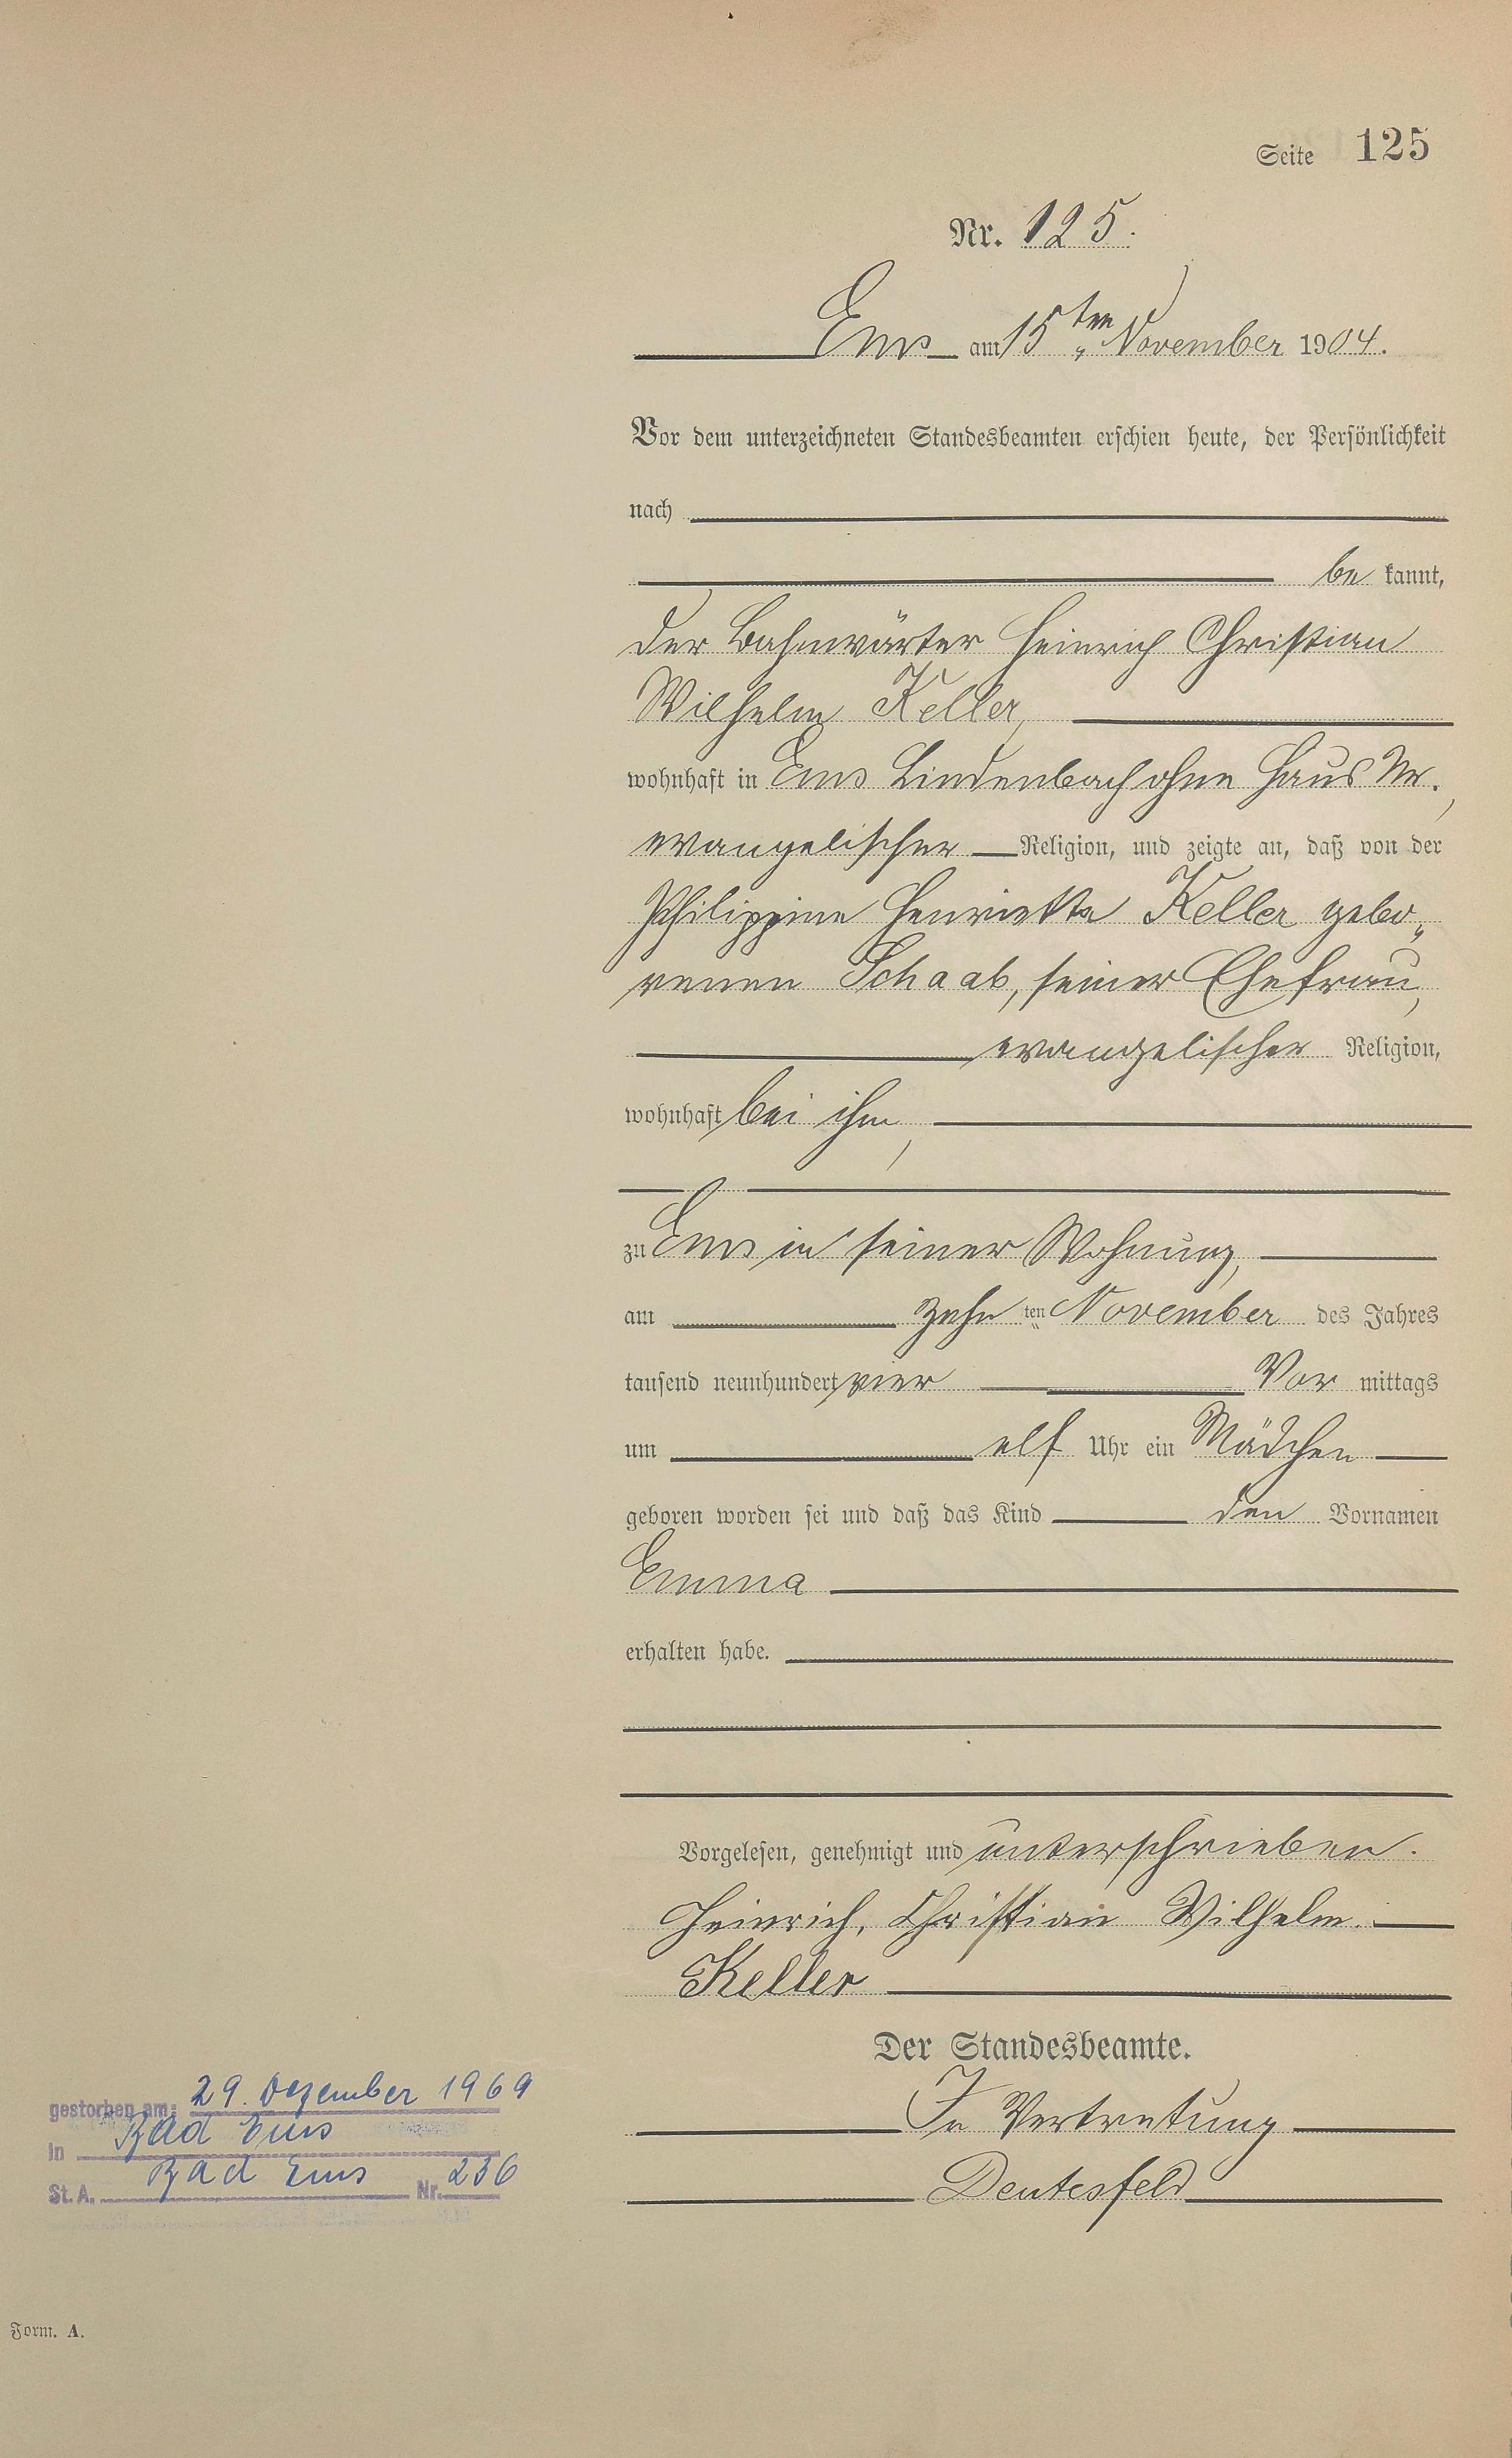 Seite 125
Nr. 125.
Ems am 15ten November 1904.
Vor dem unterzeichneten Standesbeamten erschien heute, der Persönlichkeit
nach
be kannt,
der Bahnwärter Heinrich Christian
Wilhelm Keller,
wohnhaft in Ems Lindenbach ohne Haus Nr.,
evangelischer Religion, und zeigte an, daß von der
Philippine Henriette Keller gebo„
renen Schaab, seiner Ehefrau,
evangelischer Religion,
wohnhaft bei ihm,
zu Ems in seiner Wohnung,
am zehn ten November des Jahres
tausend neunhundert vier Vor mittags
um elf Uhr ein Mädchen
geboren worden sei und daß das Kind den Vornamen
Emma
erhalten habe.
Vorgelesen, genehmigt und unterschrieben.
Heinrich, Christian Wilhelm.
Keller
Der Standesbeamte.
In Vertretung
Deutesfeld
gestorben am: 29. Dezember 1969
in Bad Ems
St. A. Bad Ems Nr. 236
Form. A.